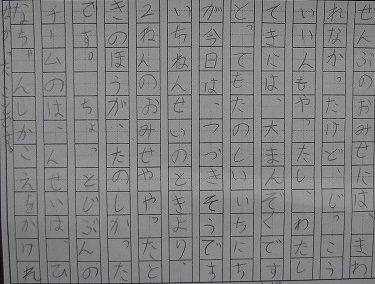 ぜんぶのおみせには、まわ
れなかったけど、じっこう
いいんもやったし、わたし
てきには、大まんぞくです
とってもたのしいいちにち
が今日は、つづきそうです
いちねんせいのときより、
2ねんのおみせややったと
きのほうが、たのしかった
です。ちょっとじぶんの
チームのは、んせいは、ひ
なちゃんしかこえをかけれ
なかったことです。